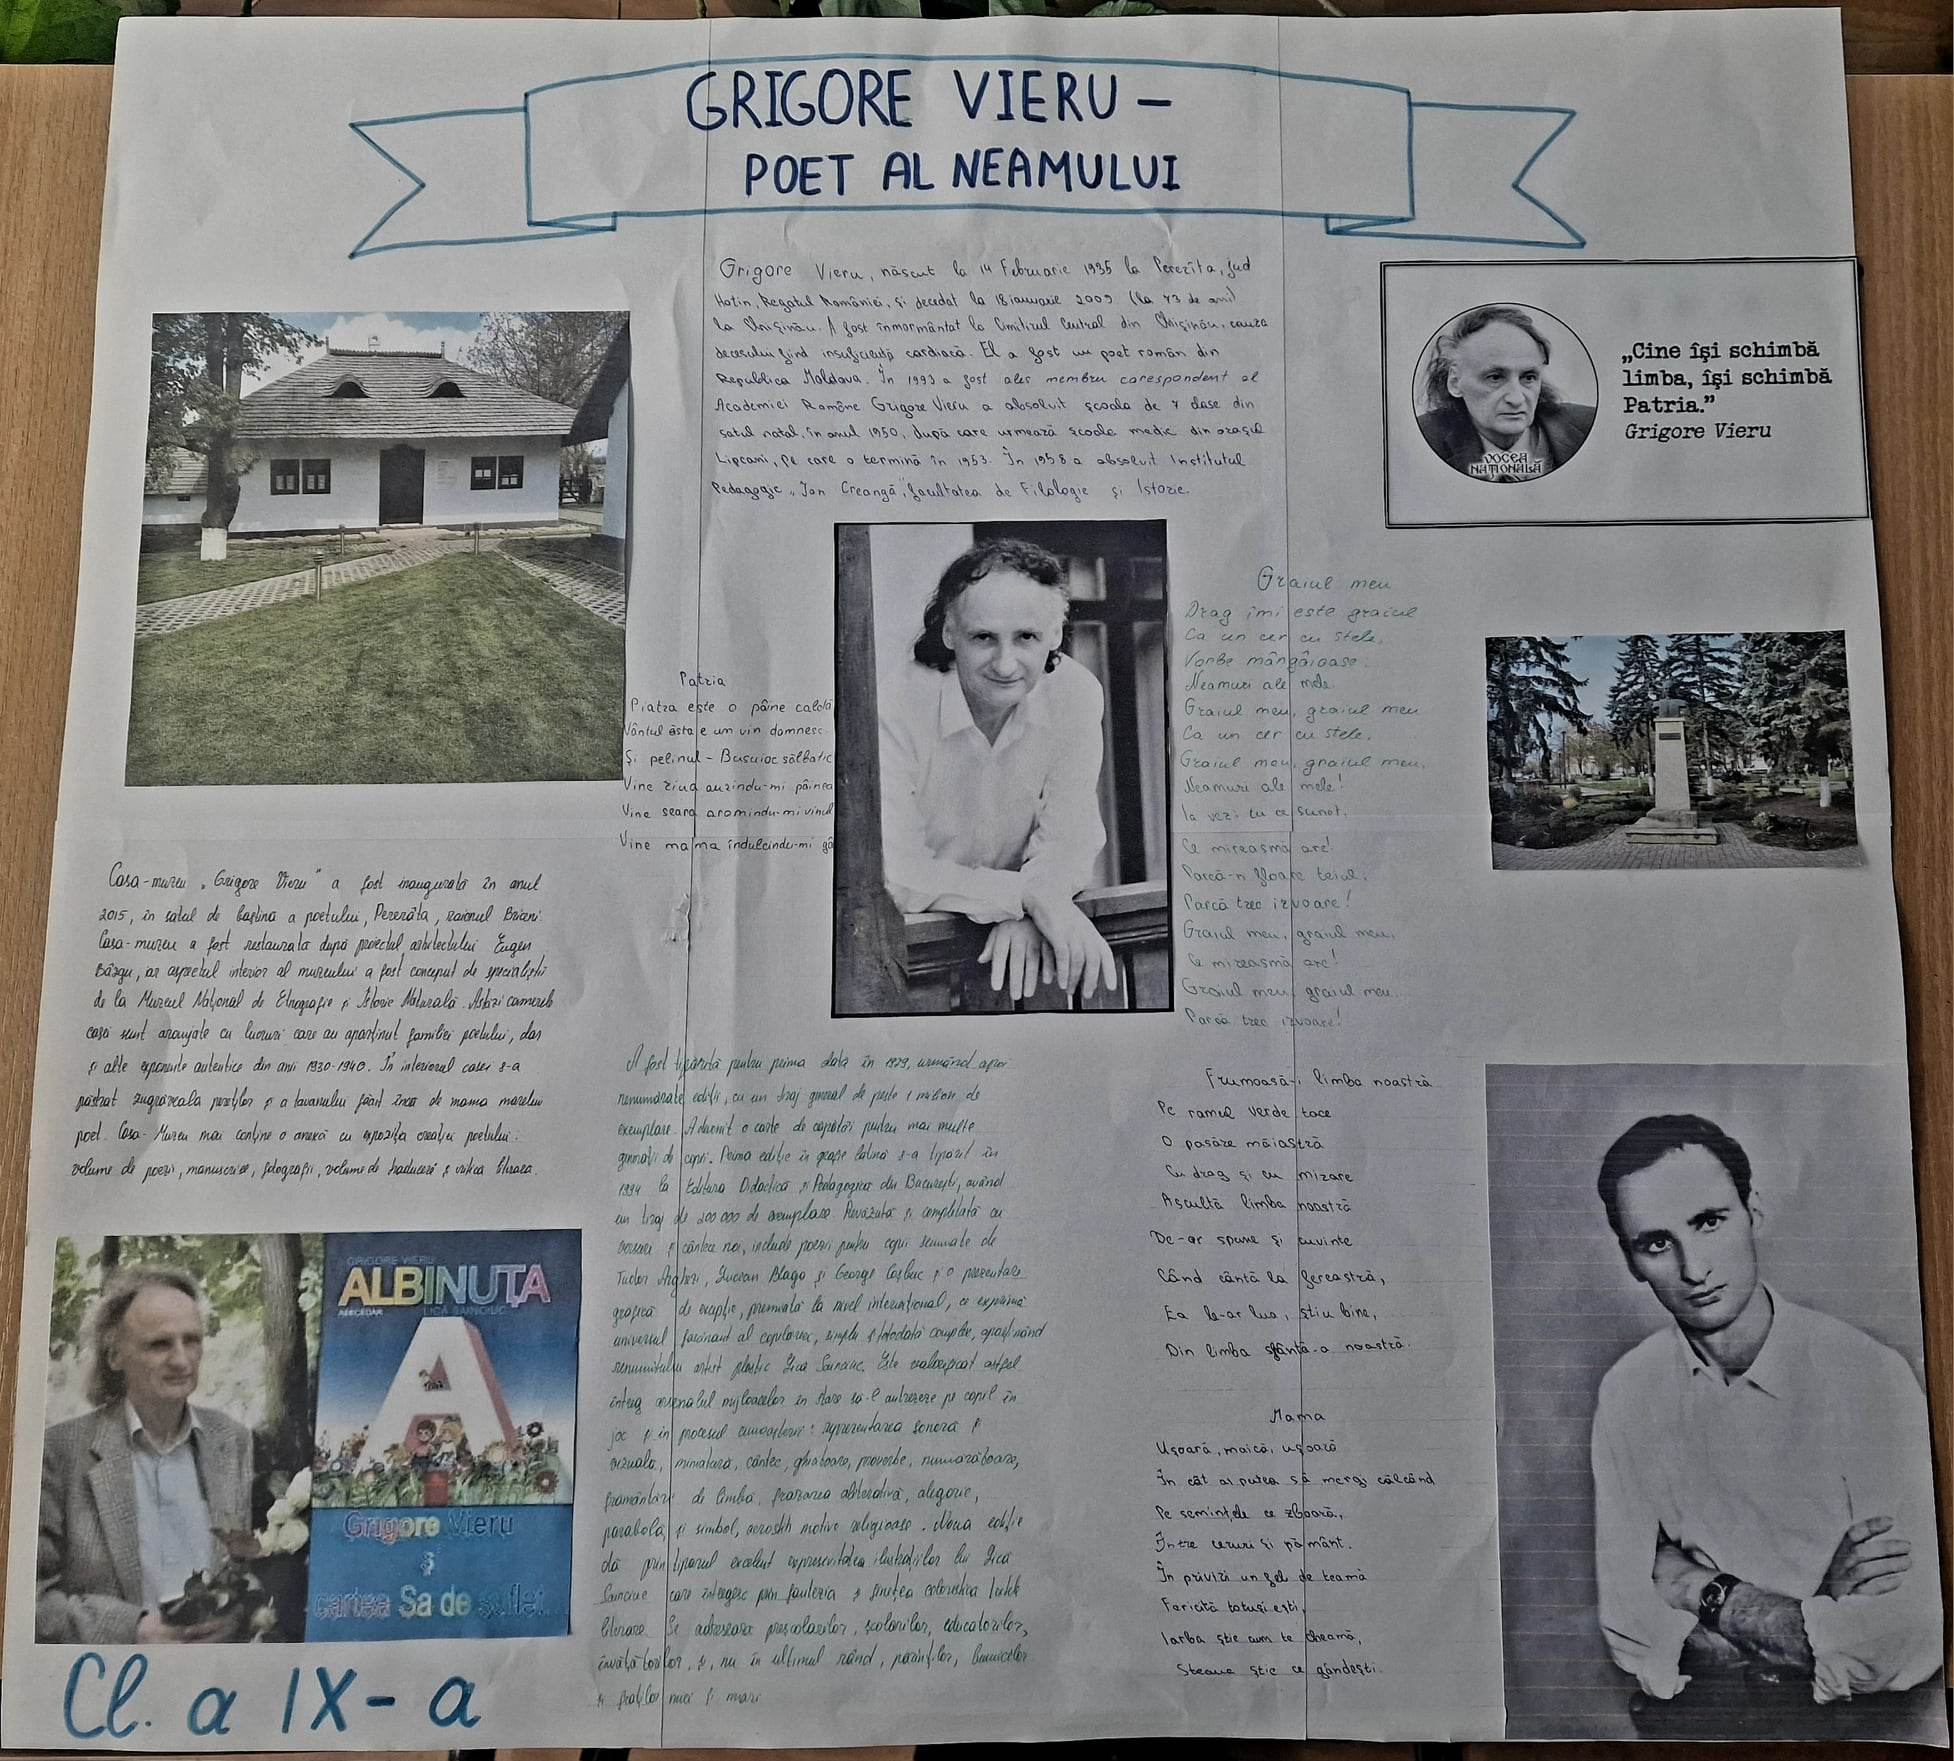 GRIGORE VIERU –
POET AL NEAMULUI
Grigore Vieru, născut la 14 Februarie 1935 la Pererîta, jud
Hotin, Regatul României, și decedat la 18 ianuarie 2009 (la 73 de ani)
la Chișinău. A fost înmormântat la Cimitirul Central din Chișinău, cauza
decesului fiind insuficiență cardiacă. El a fost un poet român din
Republica Moldova. În 1993 a fost ales membru corespondent al
Academiei Române Grigore Vieru a absolvit școala de 7 clase din
satul natal, în anul 1950, după care urmează școala medie din orașul
Lipcani, pe care o termină în 1953. În 1958 a absolvit Institutul
Pedagogic „Ion Creangă", facultatea de Filologie și Istorie.
„Cine îşi schimbă
limba, îşi schimbă
Patria.”
Grigore Vieru
VOCEA
NAȚIONALĂ
Patria
Piatra este o pâine caldă
Vântul ăsta e un vin domnesc.
Și pelinul – Busuioc sălbatic
Vine ziua aurindu-mi pâinea
Vine seara aromindu-mi vinul
Vine mama îndulcindu-mi
Graiul meu
Drag îmi este graiul
Ca un cer cu stele,
Vorbe mângâioase.
Neamuri ale mele.
Graiul meu, graiul meu
Ca un cer cu stele,
Graiul meu, graiul meu,
Neamuri ale mele!
Ia vezi tu ce sunet,
Ce mireasmă are!
Parcă-n floare teiul,
Parcă trec izvoare!
Graiul meu, graiul meu,
Ce mireasmă are!
Graiul meu, graiul meu
Parcă trec izvoare!
Casa-muzeu „Grigore Vieru" a fost inaugurată în anul
2015, în satul de baștină a poetului, Pererâta, raionul Briceni.
Casa-muzeu a fost restaurată după proiectul arhitectului Eugen
Bâzgu, iar aspectul interior al muzeului a fost conceput de specialiștii
de la Muzeul Național de Etnografie și Istorie Naturală. Astăzi camerele
casei sunt aranjate cu lucruri care au aparținut familiei poetului, dar
și alte exponate autentice din anii 1930-1940. În interiorul casei s-a
păstrat zugrăveala pereților și a tavanului făcut încă de mama marelui
poet. Casa-Muzeu mai conține o anexă cu expoziția creației poetului:
volume de poezii, manuscrise, fotografii, volume de traduceri și critică literară.
A fost tipărită pentru prima dată în 1979, urmând apoi
nenumărate ediții, cu un tiraj general de peste 1 milion de
exemplare. A devenit o carte de căpătâi pentru mai multe
generații de copii. Prima ediție în grafie latină s-a tipărit în
1994 la Editura Didactică și Pedagogică din București, având
un tiraj de 200 000 de exemplare. Revăzută și completată cu
versuri și cântece noi, include poezii pentru copii semnate de
Tudor Arghezi, Lucian Blaga și George Coșbuc și o prezentare
grafică de excepție, premiată la nivel internațional, ce exprimă
universul fascinant al copilăriei, simplu și totodată complex, aparținând
renumitului artist plastic Lică Sainciuc. Este valorificat astfel
întreg arsenalul mijloacelor în stare să-l antreneze pe copil în
joc și în procesul cunoașterii: reprezentarea sonoră și
vizuală, miniatură, cântec, ghicitoare, proverbe, numărătoare,
frământări de limbă, frazarea aliterativă, alegorie,
parabolă și simbol, acrostih motive religioase. Noua ediție
dă prin tiparul excelent expresivitatea ilustrațiilor lui Lică
Sainciuc care întregesc prin fantezia și finețea coloristică textele
literare. Se adresează preșcolarilor, școlarilor, educatorilor,
învățătorilor, și, nu în ultimul rând, părinților, bunicilor
și fraților mici și mari
Frumoasă-i limba noastră
Pe ramul verde tace
O pasăre măiastră
Cu drag și cu mirare
Ascultă limba noastră
De-ar spune și cuvinte
Când cântă la fereastră,
Ea le-ar lua, știu bine,
Din limba sfântă-a noastră.
Mama
Ușoară, maică, ușoară
În cât ai putea să mergi călcând
Pe semințele ce zboară,
Între ceruri și pământ.
În priviri un fel de teamă
Fericită totuși ești,
Iarba știe cum te cheamă,
Steaua știe ce gândești.
GRIGORE VIERU
ALBINUȚA
ABECEDAR LICĂ SAINCIUC
A
Grigore Vieru
și
cartea Sa de suflet...
Cl. a IX-a